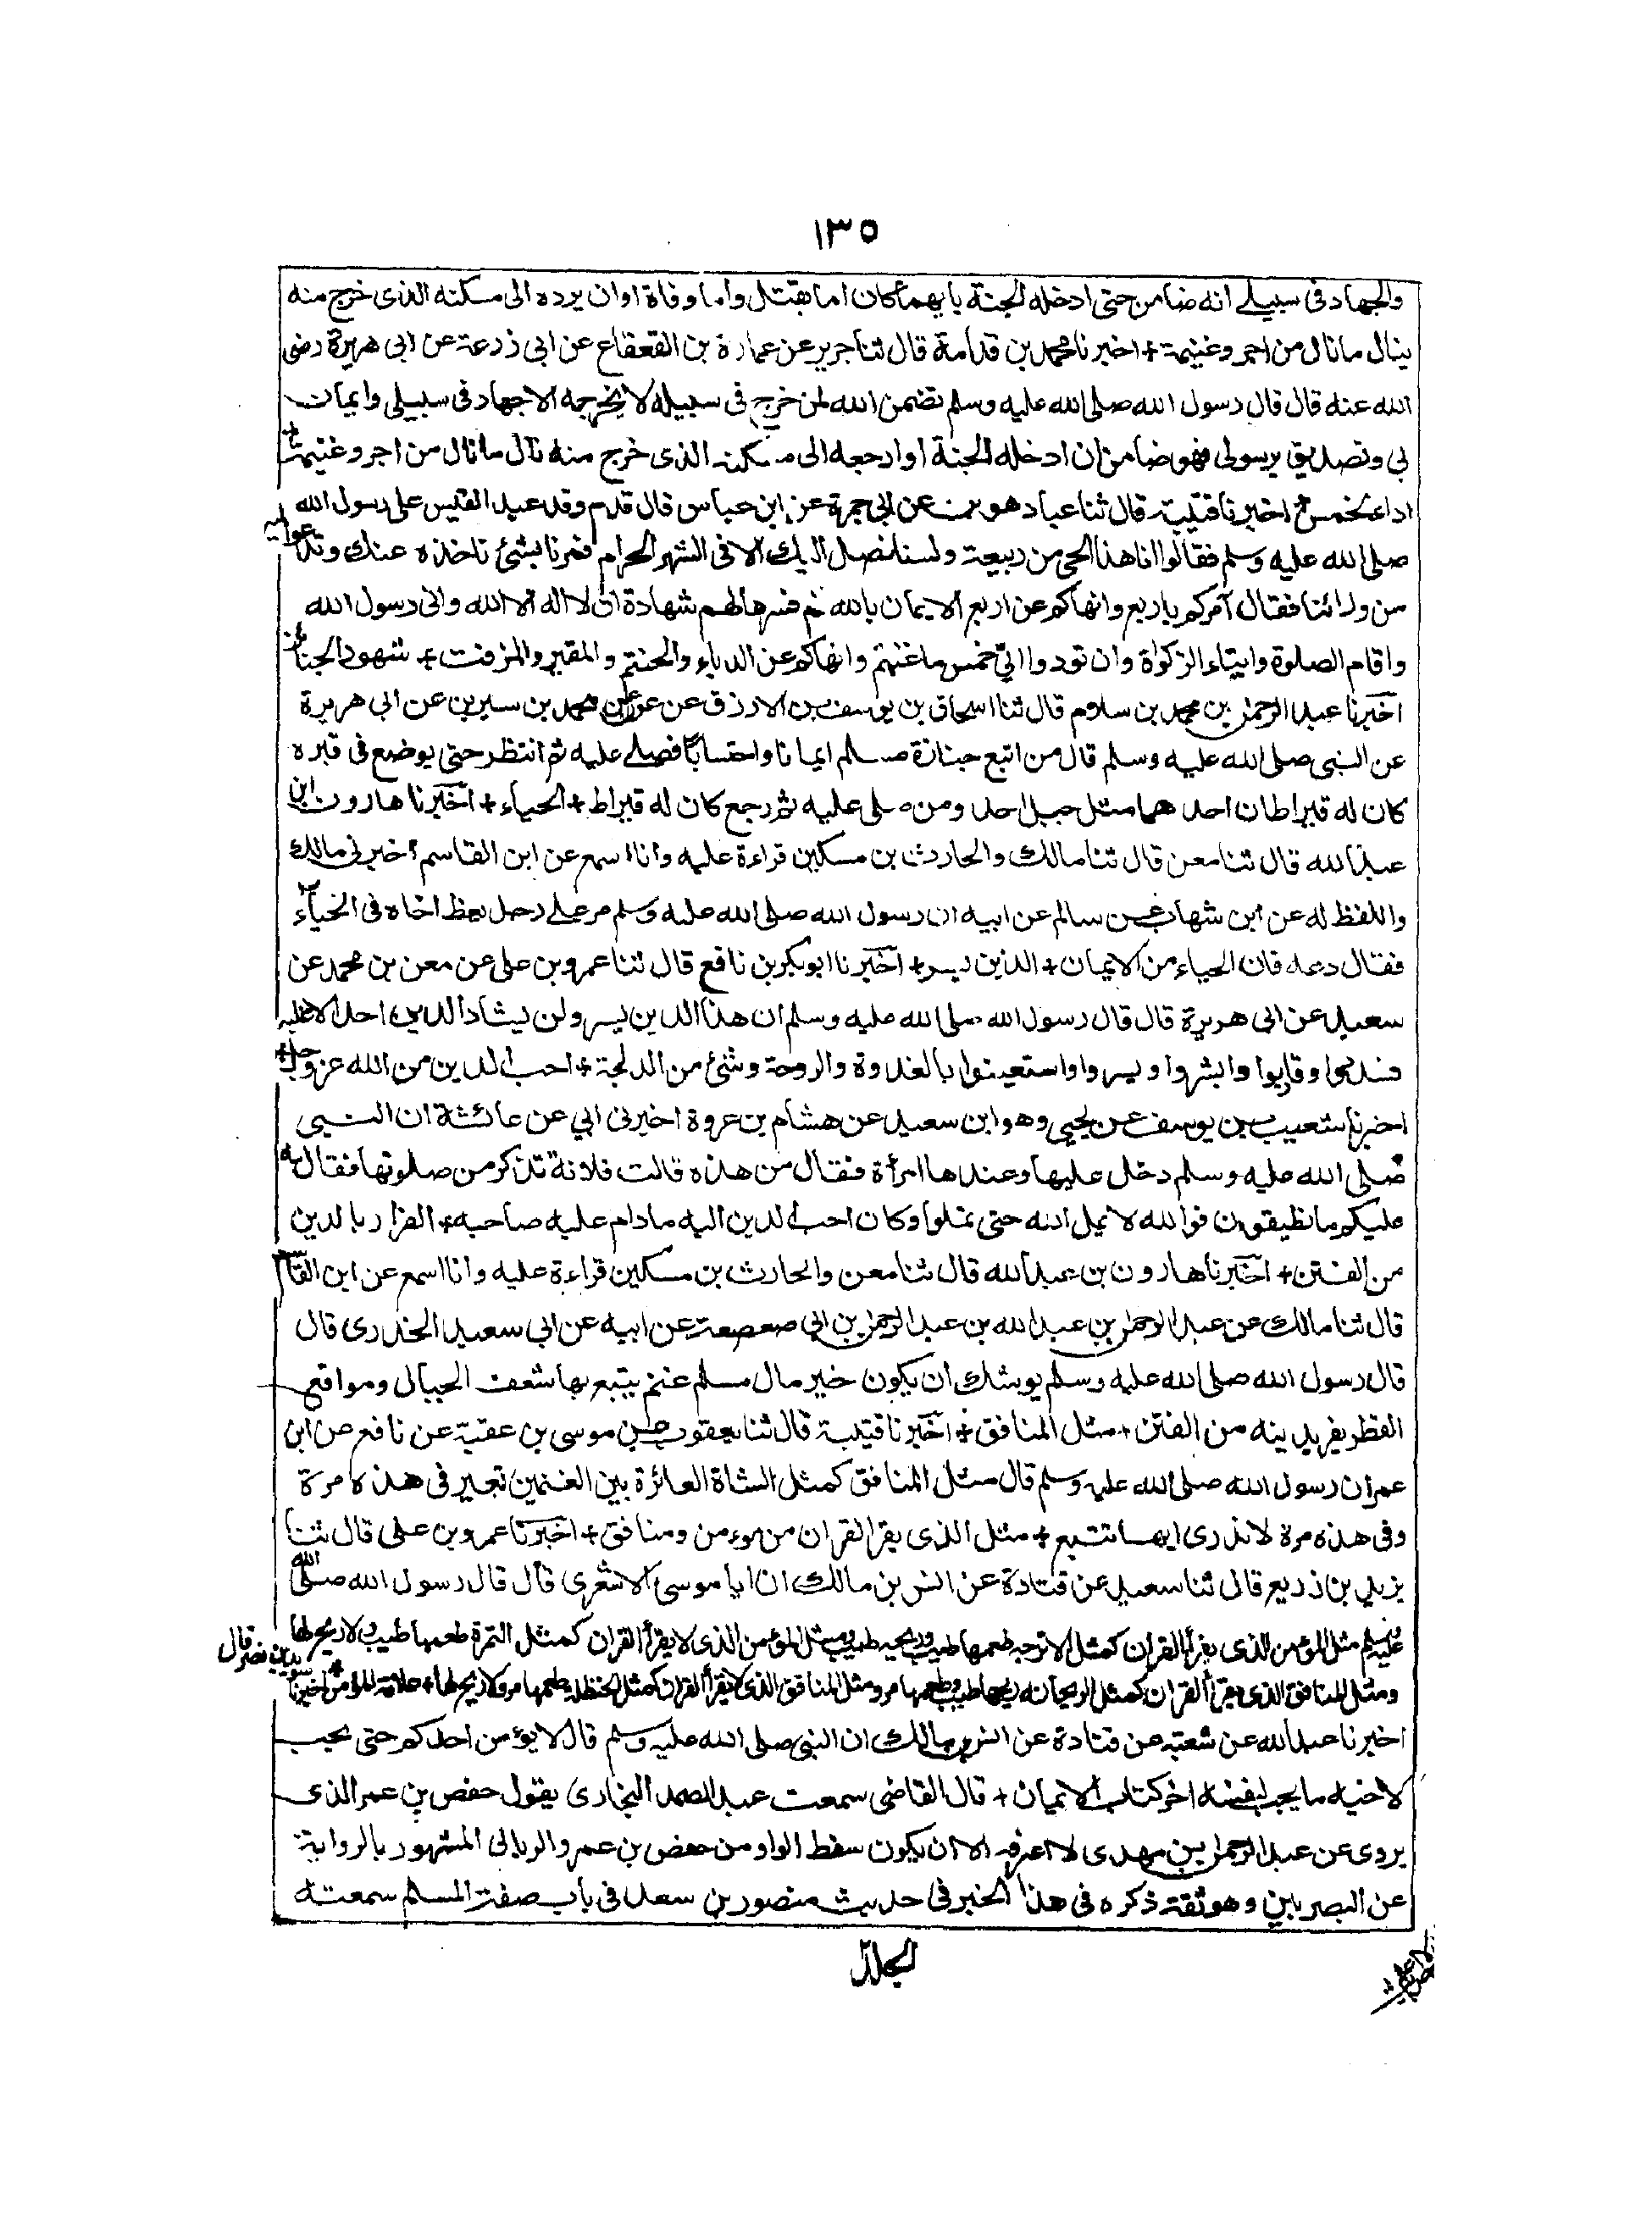 ١٣٥
والجهاد فى سبيلے انه ضامن حتى ادخله الجنة بايهما كان اما بقتل واما وفاة او ان يرده الى مسكنه الذى خرج منه
ينال ما نال من اجر وغنيمة + اخبرنا محمد بن قدامة قال ثنا جرير عن عمارة بن القعقاع عن ابى زرعة عن ابى هريرة رضى
الله عنه قال قال رسول الله صلى الله عليه وسلم تضمن الله لمن خرج فى سبيله لا يخرجه الا جهاد فى سبيلى وايمان
بى وتصديق برسولى فهو ضامن ان ادخله الجنة او ارجعه الى مسكنه الذى خرج منه نال ما نال من اجر وغنيمة
اداء الخمس + اخبرنا قتيبة قال ثنا عباد هو عن ابى جمرة عن ابن عباس قال قدم وفد عبد القيس على رسول الله
صلى الله عليه وسلم فقالوا انا هذا الحى من ربيعة ولسنا نصل اليك الا فى الشهر الحرام فمرنا بشئ ناخذه عنك وندعو اليه
من ورائنا فقال آمركم باربع وانهاكم عن اربع الايمان بالله ثم فسرها لهم شهادة ان لا اله الا الله وانى رسول الله
واقام الصلوة وايتاء الزكواة وان تودوا الىّ خمس ما غنمتم وانهاكم عن الدباء والحنتم والمقير والمزفت + شهود الجنائز
اخبرنا عبد الرحمن بن محمد بن سلام قال ثنا اسحاق بن يوسف بن الازرق عن عوف عن محمد بن سيرين عن ابى هريرة
عن النبى صلى الله عليه وسلم قال من اتبع جنازة مسلم ايمانا واحتسابا فصلے عليه ثم انتظر حتى يوضع فى قبره
كان له قيراطان احدهما مثل جبل احد ومن صلى عليه ثم رجع كان له قيراط + الحياء + اخبرنا هارون ابن
عبد الله قال ثنا معن قال ثنا مالك والحارث بن مسكين قراءة عليه وانا اسمع عن ابن القاسم اخبرنى مالك
واللفظ له عن ابن شهاب عن سالم عن ابيه ان رسول الله صلى الله عليه وسلم مر على رجل يعظ اخاه فى الحياء
فقال دعه فان الحياء من الايمان + الدين يسر + اخبرنا ابو بكر بن نافع قال ثنا عمرو بن على عن معن بن محمد عن
سعيد عن ابى هريرة قال قال رسول الله صلى الله عليه وسلم ان هذا الدين يسر ولن يشاد الدين احد الا غلبه
فسددوا وقاربوا وابشروا ويسروا واستعينوا بالغدوة والروحة وشئ من الدلجة + احب الدين من الله عز وجل +
اخبرنا شعيب بن يوسف عن يحيى وهو ابن سعيد عن هشام بن عروة اخبرنى ابي عن عائشة ان النبى
صلى الله عليه وسلم دخل عليها وعندها امرأة فقال من هذه قالت فلانة تذكر من صلوتها فقال مه
عليكم ما تطيقون فوالله لا يمل الله حتى تملوا وكان احب الدين اليه ما دام عليه صاحبه + الفرار بالدين
من الفتن + اخبرنا هارون بن عبد الله قال ثنا معن والحارث بن مسكين قراءة عليه وانا اسمع عن ابن القاسم
قال ثنا مالك عن عبد الرحمن بن عبد الله بن عبد الرحمن بن ابى صعصعة عن ابيه عن ابى سعيد الخدرى قال
قال رسول الله صلى الله عليه وسلم يوشك ان يكون خير مال مسلم غنم يتبع بها شعف الجبال ومواقع
القطر يفر بدينه من الفتن + مثل المنافق + اخبرنا قتيبة قال ثنا يعقوب عن موسى بن عقبة عن نافع عن ابن
عمر ان رسول الله صلى الله عليه وسلم قال مثل المنافق كمثل الشاة العائرة بين الغنمين تعير فى هذه مرة
وفى هذه مرة لا تدرى ايها تتبع + مثل الذى يقرا القران من موءمن ومنافق + اخبرنا عمرو بن على قال ثنا
يزيد بن زريع قال ثنا سعيد عن قتادة عن انس بن مالك ان ابا موسى الاشعرى قال قال رسول الله صلى الله
عليه وسلم مثل المؤمن الذى يقرأ القران كمثل الاترجة طعمها طيب وريحه طيب ومثل المؤمن الذى لا يقرأ القران كمثل التمرة طعمها طيب ولا ريح لها
ومثل المنافق الذى يقرأ القران كمثل الريحانه ريحها طيب وطعمها مر ومثل المنافق الذى لا يقرأ القران كمثل الحنظلة طعمها مر ولا ريح لها + علامة المؤمن + اخبرنا سويد بن نصر قال
اخبرنا عبد الله عن شعبة عن قتادة عن انس بن مالك ان النبى صلى الله عليه وسلم قال لا يؤمن احدكم حتى يحب
لاخيه ما يحب لنفسه اخر كتاب الايمان + قال القاضى سمعت عبد الصمد البخارى يقول حفص بن عمر الذى
يروى عن عبد الرحمن بن مهدى لا اعرفه الا ان يكون سقط الواو من حفص بن عمرو الربالى المشهور بالرواية
عن البصريين وهو ثقة ذكره فى هذا الخبر فى حديث منصور بن سعد فى باب صفة المسلم سمعته